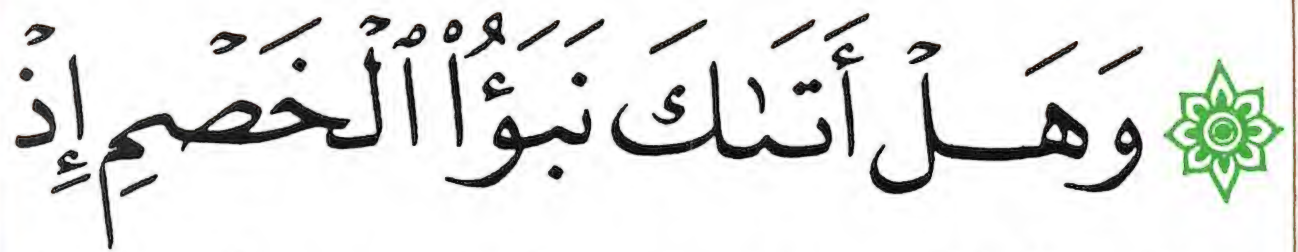 ۞ وَهَلْ أَتَىٰكَ نَبَؤُا۟ ٱلْخَصْمِ إِذْ